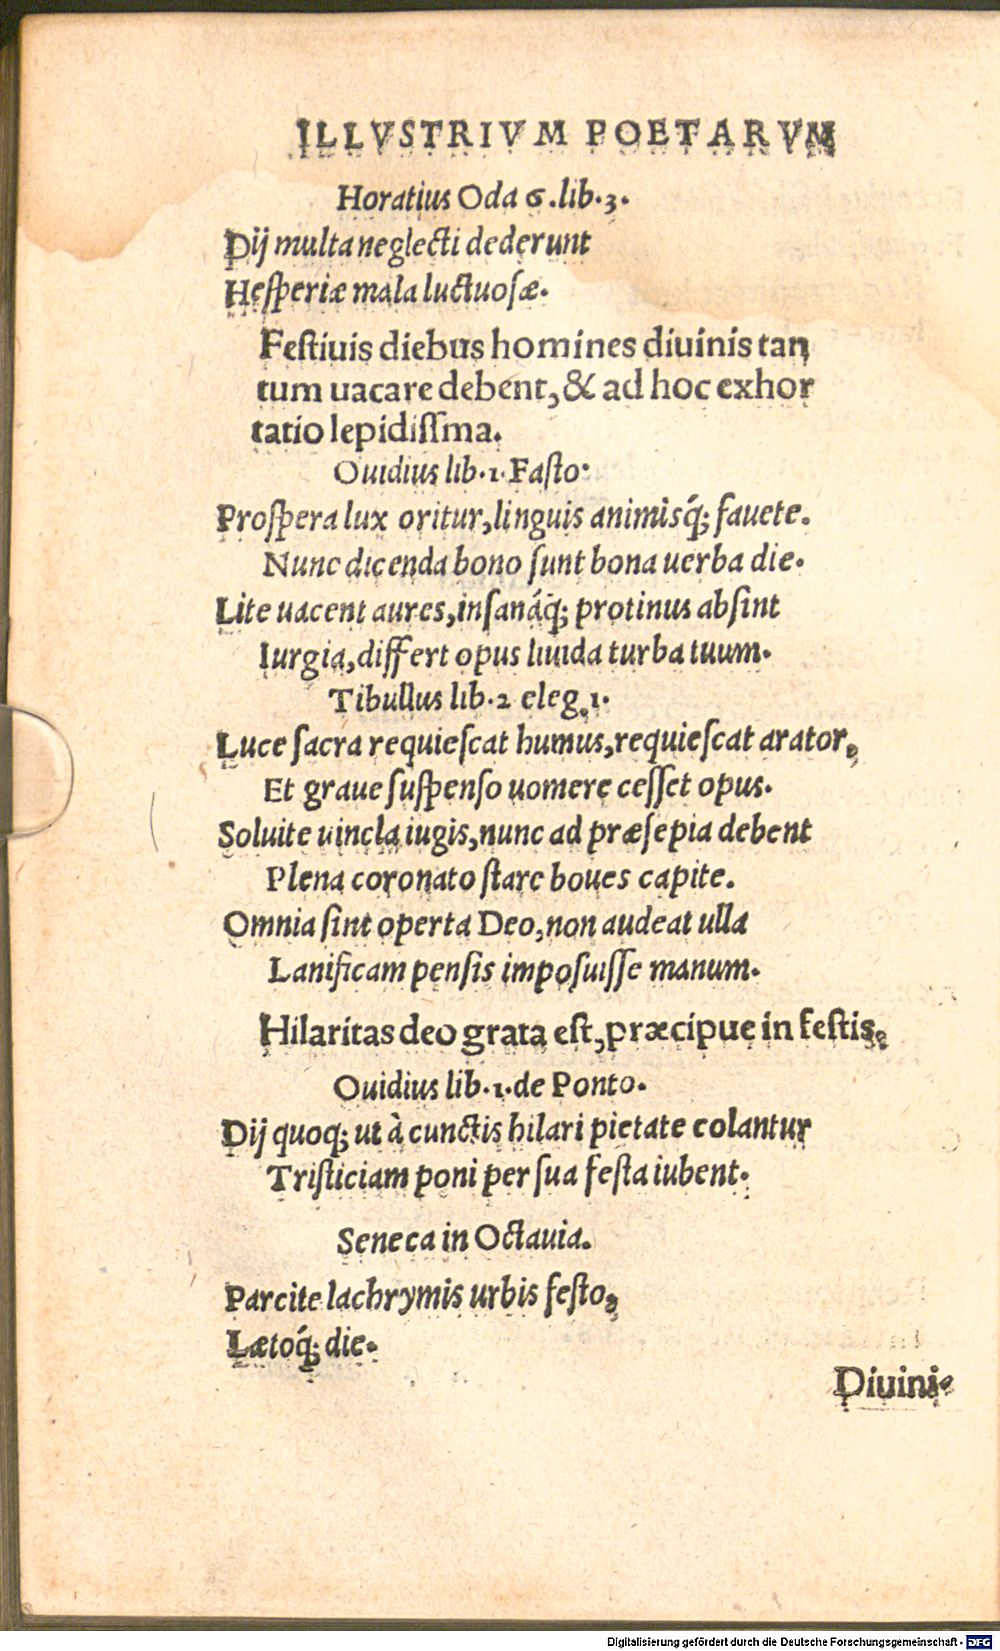 ILLVSTRIVM POETARVM
Horatius Oda 6.lib.3.
Dij multa neglecti dederunt
Hesperiæ mala luctuosæ.
Festiuis diebus homines diuinis tan
tum uacare debent, & ad hoc exhor
tatio lepidissma.
Ouidius lib.1.Fasto:
Prospera lux oritur,linguis animisq́; fauete.
Nunc dicenda bono sunt bona uerba die.
Lite uacent aures,insanáq́; protinus absint
Iurgia,differt opus liuida turba tuum.
Tibullus lib.2 eleg.1.
Luce sacra requiescat humus,requiescat arator,
Et graue suspenso uomere cesset opus.
Soluite uincla iugis,nunc ad præsepia debent
Plena coronato stare boues capite.
Omnia sint operta Deo,non audeat ulla
Lanificam pensis imposuisse manum.
Hilaritas deo grata est,præcipue in festis.
Ouidius lib.1.de Ponto.
Dij quoq; ut à cunctis hilari pietate colantur
Tristiciam poni per sua festa iubent.
Seneca in Octauia.
Parcite lachrymis urbis festo,
Lætoq́; die.
Diuini-
Digitalisierung gefördert durch die Deutsche Forschungsgemeinschaft - DFG